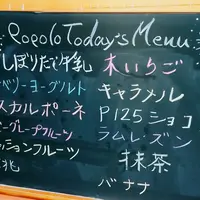 Popolo Today's Menu
しぼりたて牛乳
ベリーヨーグルト
スカルポーネ
グレープフルーツ
ッションフルーツ
木いちご
キャラメル
P125ショコ
ラムレーズン
抹茶
バナナ